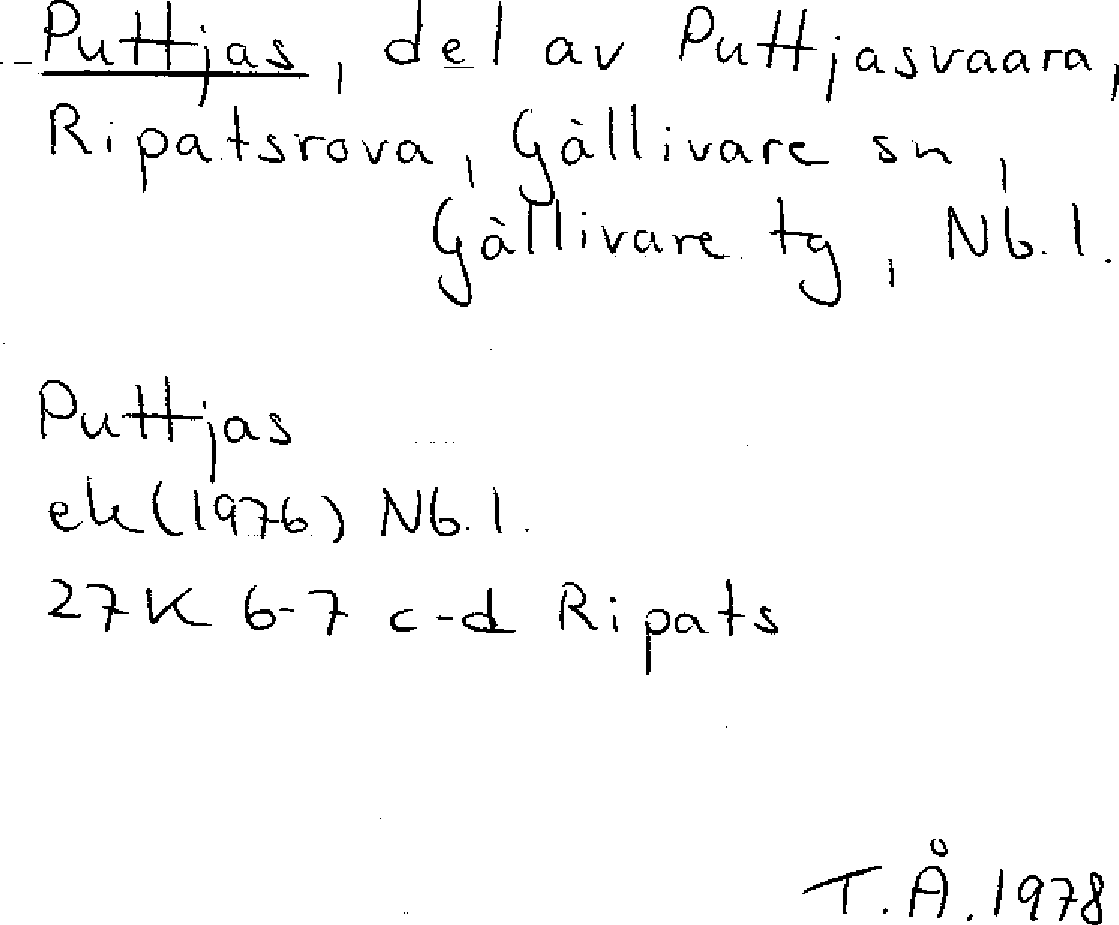 Puttjas, del av Puttjasvaara,
Ripatsrova, Gällivare sn,
Gällivare tg, Nb. l.
Puttjas
ek (1976) Nb. l.
27K 6-7 c-d Ripats
T.Å. 1978